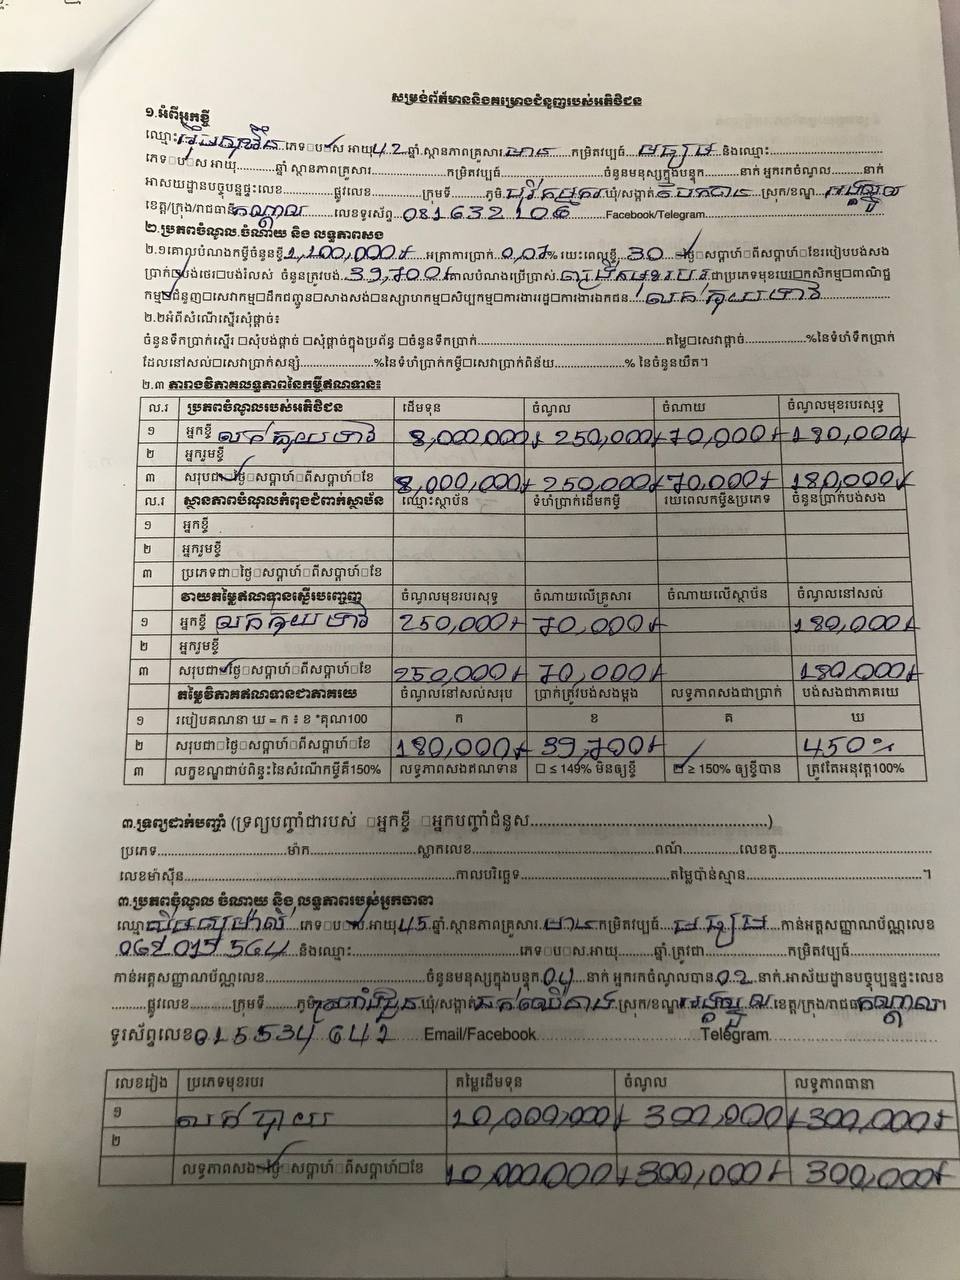 សម្រង់ព័ត៌មាននិងគម្រោងជំនួញរបស់អតិថិជន
១.អំពីអ្នកខ្ចី
ឈ្មោះ ភេទ□ប□ស អាយុ 42 ឆ្នាំ.ស្ថានភាពគ្រួសារ មាន កម្រិតវប្បធ៌ មធ្យម និងឈ្មោះ
ភេទ□ប□ស អាយុ ឆ្នាំ ស្ថានភាពគ្រួសារ កម្រិតវប្បធ៌ ចំនួនមនុស្សក្នុងបន្ទុក នាក់ អ្នករកចំណូល នាក់
អាសយដ្ឋានបច្ចុបន្នផ្ទះលេខ ផ្លូវលេខ ក្រុមទី ភូមិ ឃុំ/សង្កាត់ ស្រុក/ខណ្ឌ អង្គស្នួល
ខេត្ត/ក្រុង/រាជធានី កណ្តាល លេខទូរស័ព្ទ Facebook/Telegram
២.ប្រភពចំណូល.ចំណាយ និង លទ្ធភាពសង
២.១គោលបំណងកម្ចីចំនួនខ្ចី 1,100,000៛ អត្រាការប្រាក់ 0,07% រយៈពេលខ្ចី 30 □ថ្ងៃ □សប្តាហ៍ □ពីសប្តាហ៍ □ខែរបៀបបង់សង
ប្រាក់□បង់ថេរ□បង់រំលស់ ចំនួនត្រូវបង់ 39,700៛ គោលបំណងប្រើប្រាស់ ពង្រីកមុខរបរ ជាប្រភេទមុខរបរ□កសិកម្ម□ពាណិជ្ជ
កម្ម□ជំនួញ□សេវាកម្ម□ដឹកជញ្ជូន□សាងសង់□ឧស្សាហកម្ម□សិប្បកម្ម□ការងាររដ្ឋ□ការងារឯកជន លក់គុយទាវ
២.២អំពីសំណើស្នើរសុំផ្តាច់៖
ចំនួនទឹកប្រាក់ស្នើរ □សុំបង់ផ្តាច់ □សុំផ្តាច់ក្នុងប្រព័ន្ធ □ចំនួនទឹកប្រាក់ តម្លៃ□សេវាផ្តាច់ %នៃទំហំទឹកប្រាក់
ដែលនៅសល់□សេវាប្រាក់សន្សំ %នៃទំហំប្រាក់កម្ចី□សេវាប្រាក់ពិន័យ % នៃចំនួនយឺត។
២.៣ តារាងវិភាគលទ្ធភាពនៃកម្ចីឥណទាន៖
ល.រ ប្រភពចំណូលរបស់អតិថិជន ដើមទុន ចំណូល ចំណាយ ចំណូលមុខរបរសុទ្ធ
១ អ្នកខ្ចី លក់គុយទាវ 8,000,000៛ 250,000៛ 70,000៛ 180,000៛
២ អ្នករួមខ្ចី
៣ សរុបជា□ថ្ងៃ□សប្តាហ៍□ពីសប្តាហ៍□ខែ 8,000,000៛ 250,000៛ 70,000៛ 180,000៛
ល.រ ស្ថានភាពបំណុលកំពុងជំពាក់ស្ថាប័ន ឈ្មោះស្ថាប័ន ទំហំប្រាក់ដើមកម្ចី រយៈពេលកម្ចី&ប្រភេទ ចំនួនប្រាក់បង់សង
១ អ្នកខ្ចី
២ អ្នករួមខ្ចី
៣ ប្រភេទជា□ថ្ងៃ□សប្តាហ៍□ពីសប្តាហ៍□ខែ
វាយតម្លៃឥណទានស្នើរបញ្ចេញ ចំណូលមុខរបរសុទ្ធ ចំណាយលើគ្រួសារ ចំណាយលើស្ថាប័ន ចំណូលនៅសល់
១ អ្នកខ្ចី លក់គុយទាវ 250,000៛ 70,000៛ 180,000៛
២ អ្នករួមខ្ចី
៣ សរុបជា□ថ្ងៃ□សប្តាហ៍□ពីសប្តាហ៍□ខែ 250,000៛ 70,000៛ 180,000៛
តម្លៃវិភាគឥណទានជាភាគរយ ចំណូលនៅសល់សរុប ប្រាក់ត្រូវបង់សងម្តង លទ្ធភាពសងជាប្រាក់ បង់សងជាភាគរយ
១ របៀបគណនា ឃ = ក ៖ ខ *គុណ100 ក ខ គ ឃ
២ សរុបជា□ថ្ងៃ□សប្តាហ៍□ពីសប្តាហ៍□ខែ 180,000៛ 39,700៛ 450%
៣ លក្ខខណ្ឌជាប់ពិន្ទុះនៃសំណើកម្ចីគឺ150% លទ្ធភាពសងឥណទាន □ ≤ 149% មិនឲ្យខ្ចី ☑ ≥ 150% ឲ្យខ្ចីបាន ត្រូវតែអនុវត្ត100%
៣.ទ្រព្យដាក់បញ្ចាំ (ទ្រព្យបញ្ចាំជារបស់ □អ្នកខ្ចី □អ្នកបញ្ចាំជំនួស)
ប្រភេទ ម៉ាក ស្លាកលេខ ពណ៌ លេខតួ
លេខម៉ាស៊ីន កាលបរិច្ឆេទ តម្លៃប៉ាន់ស្មាន ។
៣.ប្រភពចំណូល ចំណាយ និង លទ្ធភាពរបស់អ្នកធានា
ឈ្មោះ ភេទ□ប□ស.អាយុ 45 ឆ្នាំ.ស្ថានភាពគ្រួសារ មាន កម្រិតវប្បធ៌ មធ្យម កាន់អត្តសញ្ញាណប័ណ្ណលេខ
និងឈ្មោះ ភេទ□ប□ស.អាយុ ឆ្នាំ.ត្រូវជា កម្រិតវប្បធ៌
កាន់អត្តសញ្ញាណប័ណ្ណលេខ ចំនួនមនុស្សក្នុងបន្ទុក 04 នាក់ អ្នករកចំណូលបាន 02 នាក់.អាស័យដ្ឋានបច្ចុប្បន្នផ្ទះលេខ
ផ្លូវលេខ ក្រុមទី ភូមិ ឃុំ/សង្កាត់ ស្រុក/ខណ្ឌ អង្គស្នួល ខេត្ត/ក្រុង/រាជធានី កណ្តាល។
ទូរស័ព្ទលេខ 015 534 642 Email/Facebook Telegram
លេខរៀង ប្រភេទមុខរបរ តម្លៃដើមទុន ចំណូល លទ្ធភាពធានា
១ លក់បាយ 10,000,000៛ 300,000៛ 300,000៛
២
លទ្ធភាពសង□ថ្ងៃ□សប្តាហ៍□ពីសប្តាហ៍□ខែ 10,000,000៛ 300,000៛ 300,000៛